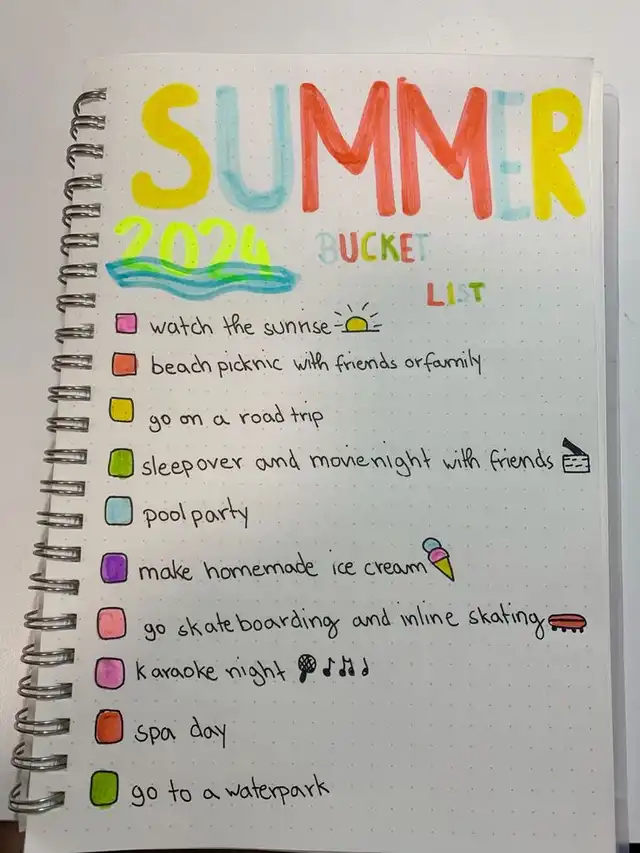 SUMMER
2024 BUCKET
LIST
watch the sunrise
beach picknic with friends or family
go on a road trip
sleepover and movienight with friends
pool party
make homemade ice cream
go skateboarding and inline skating
karaoke night
spa day
go to a waterpark